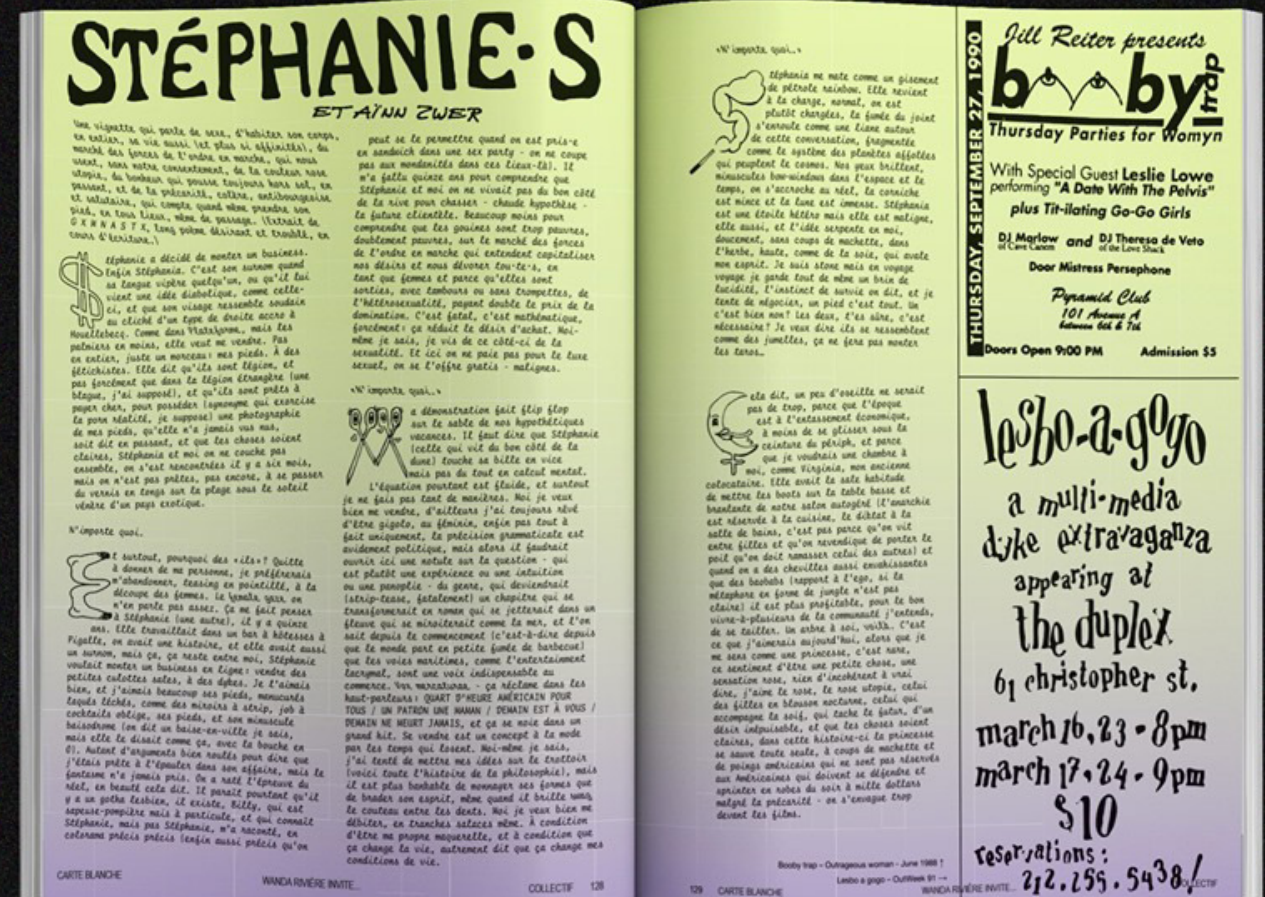 STÉPHANIE·S
ET AÏNN ZWER
Une vignette qui parle de sexe, d'habiter son corps,
en entier, sa vie aussi (et plus si affinités), du
marché des forces de l'ordre en marche, qui nous
usent, sans notre consentement, de la couleur rose
utopie, du bonheur qui pousse toujours hors sol, en
passant, et de la précarité, colère, antibourgeoise
et salutaire, qui compte quand même prendre son
pied, en tous lieux, même de passage. (Extrait de
GXWNASTX, long poème désirant et troublé, en
cours d'écriture.)
Stéphanie a décidé de monter un business.
Enfin Stéphania. C'est son surnom quand
sa langue vipère quelqu'un, ou qu'il lui
vient une idée diabolique, comme celle-
ci, et que son visage ressemble soudain
au cliché d'un type de droite accro à
Houellebecq. Comme dans Plateforme, mais les
palmiers en moins, elle veut me vendre. Pas
en entier, juste un morceau: mes pieds. À des
fétichistes. Elle dit qu'ils sont légion, et
pas forcément que dans la légion étrangère (une
blague, j'ai supposé), et qu'ils sont prêts à
payer cher, pour posséder (synonyme qui exorcise
la porn réalité, je suppose) une photographie
de mes pieds, qu'elle n'a jamais vus nus,
soit dit en passant, et que les choses soient
claires, Stéphania et moi on ne couche pas
ensemble, on s'est rencontrées il y a six mois,
mais on n'est pas prêtes, pas encore, à se passer
du vernis en tongs sur la plage sous le soleil
vénère d'un pays exotique.
N'importe quoi.
Et surtout, pourquoi des «ils»? Quitte
à donner de ma personne, je préférerais
m'abandonner, teasing en pointillé, à la
découpe des femmes. Le female gaze, on
n'en parle pas assez. Ça me fait penser
à Stéphanie (une autre), il y a quinze
ans. Elle travaillait dans un bar à hôtesses à
Pigalle, on avait une histoire, et elle avait aussi
un surnom, mais ça, ça reste entre moi, Stéphanie
voulait monter un business en ligne: vendre des
petites culottes sales, à des dykes. Je l'aimais
bien, et j'aimais beaucoup ses pieds, menucurés
laqués léchés, comme des miroirs à strip, job à
cocktails oblige, ses pieds, et son minuscule
baisodrome (on dit un baise-en-ville je sais,
mais elle le disait comme ça, avec la bouche en
O). Autant d'arguments bien roulés pour dire que
j'étais prête à l'épauler dans son affaire, mais le
fantasme n'a jamais pris. On a raté l'épreuve du
réel, en beauté cela dit. Il parait pourtant qu'il
y a un gotha lesbien, il existe, Billy, qui est
sapeuse-pompière mais à particule, et qui connaît
Stéphanie, mais pas Stéphanie, m'a raconté, en
colorama précis précis (enfin aussi précis qu'on
peut se le permettre quand on est pris·e
en sandwich dans une sex party - on ne coupe
pas aux mondanités dans ces lieux-là). Il
m'a fallu quinze ans pour comprendre que
Stéphanie et moi on ne vivait pas du bon côté
de la rive pour chasser - chaude hypothèse -
la future clientèle. Beaucoup moins pour
comprendre que les gouines sont trop pauvres,
doublement pauvres, sur le marché des forces
de l'ordre en marche qui entendent capitaliser
nos désirs et nous dévorer tou·te·s, en
tant que femmes et parce qu'elles sont
sorties, avec tambours ou sans trompettes, de
l'hétérosexualité, payant double le prix de la
domination. C'est fatal, c'est mathématique,
forcément: ça réduit le désir d'achat. Moi-
même je sais, je vis de ce côté-ci de la
sexualité. Et ici on ne paie pas pour le luxe
sexuel, on se l'offre gratis - malignes.
«N'importe quoi.»
Ma démonstration fait flip flop
sur le sable de nos hypothétiques
vacances. Il faut dire que Stéphanie
(celle qui vit du bon côté de la
dune) touche sa bille en vice
mais pas du tout en calcul mental.
L'équation pourtant est fluide, et surtout
je ne fais pas tant de manières. Moi je veux
bien me vendre, d'ailleurs j'ai toujours rêvé
d'être gigolo, au féminin, enfin pas tout à
fait uniquement, la précision grammaticale est
avidement politique, mais alors il faudrait
ouvrir ici une notule sur la question - qui
est plutôt une expérience ou une intuition
ou une panoplie - du genre, qui deviendrait
(strip-tease, fatalement) un chapitre qui se
transformerait en roman qui se jetterait dans un
fleuve qui se miroiterait comme la mer, et l'on
sait depuis le commencement (c'est-à-dire depuis
que le monde part en petite fumée de barbecue)
que les voies maritimes, comme l'entertainment
lacrymal, sont une voie indispensable au
commerce. Vos mercatures - ça réclame dans les
haut-parleurs: QUART D'HEURE AMÉRICAIN POUR
TOUS / UN PATRON UNE MAMAN / DEMAIN EST À VOUS /
DEMAIN NE MEURT JAMAIS, et ça se noie dans un
grand hit. Se vendre est un concept à la mode
par les temps qui losent. Moi-même je sais,
j'ai tenté de mettre mes idées sur le trottoir
(voici toute l'histoire de la philosophie), mais
il est plus bankable de monnayer ses formes que
de brader son esprit, même quand il brille
le couteau entre les dents. Moi je veux bien me
débiter, en tranches salaces même. À condition
d'être ma propre maquerelle, et à condition que
ça change la vie, autrement dit que ça change mes
conditions de vie.
CARTE BLANCHE
WANDA RIVIÈRE INVITE...
COLLECTIF 128
«N'importe quoi.»
Stéphania me mate comme un gisement
de pétrole rainbow. Elle revient
à la charge, normal, on est
plutôt chargées, la fumée du joint
s'enroule comme une liane autour
de cette conversation, fragmentée
comme le système des planètes affolées
qui peuplent le cosmos. Nos yeux brillent,
minuscules bow-windows dans l'espace et le
temps, on s'accroche au réel, la corniche
est mince et la lune est immense. Stéphania
est une étoile hétéro mais elle est maligne,
elle aussi, et l'idée serpente en moi,
doucement, sans coups de machette, dans
l'herbe, haute, comme de la soie, qui avale
mon esprit. Je suis stone mais en voyage
voyage je garde tout de même un brin de
lucidité, l'instinct de survie on dit, et je
tente de négocier, un pied c'est tout. Un
c'est bien non? Les deux, t'es sûre, c'est
nécessaire? Je veux dire ils se ressemblent
comme des jumelles, ça ne fera pas monter
les teros…
Cela dit, un peu d'oseille ne serait
pas de trop, parce que l'époque
est à l'entassement économique,
à moins de se glisser sous la
ceinture du périph, et parce
que je voudrais une chambre à
moi, comme Virginia, mon ancienne
colocataire. Elle avait la sale habitude
de mettre les boots sur la table basse et
branlante de notre salon autogéré (l'anarchie
est réservée à la cuisine, le diktat à la
salle de bains, c'est pas parce qu'on vit
entre filles et qu'on revendique de porter le
poil qu'on doit ramasser celui des autres) et
quand on a des chevilles aussi envahissantes
que des baobabs (rapport à l'ego, si la
métaphore en forme de jungle n'est pas
claire) il est plus profitable, pour le bon
vivre-à-plusieurs de la communauté j'entends,
de se tailler. Un arbre à soi, voilà. C'est
ce que j'aimerais aujourd'hui, alors que je
me sens comme une princesse, c'est rare,
ce sentiment d'être une petite chose, une
sensation rose, rien d'incohérent à vrai
dire, j'aime le rose, le rose utopie, celui
des filles en blouson nocturne, celui qui
accompagne la soif, qui tache le futur, d'un
désir inépuisable, et que les choses soient
claires, dans cette histoire-ci la princesse
se sauve toute seule, à coups de machette et
de poings américains qui ne sont pas réservés
aux Américaines qui doivent se défendre et
sprinter en robes du soir à mille dollars
malgré la précarité - on s'envague trop
devant les films.
Booby trap – Outrageous woman - June 1988 ↑
Lesbo a gogo – OutWeek 91 →
129 CARTE BLANCHE
WANDA RIVIÈRE INVITE...
COLLECTIF
THURSDAY, SEPTEMBER 27, 1990
Jill Reiter presents
booby trap
Thursday Parties for Womyn
With Special Guest Leslie Lowe
performing "A Date With The Pelvis"
plus Tit-ilating Go-Go Girls
DJ Marlow and DJ Theresa de Veto
of Cave Canem of the Love Shack
Door Mistress Persephone
Pyramid Club
101 Avenue A
between 6th & 7th
Doors Open 9:00 PM Admission $5
lesbo-a-gogo
a multi-media
dyke extravaganza
appearing at
the duplex
61 christopher st.
march 16,23 - 8pm
march 17,24 - 9pm
$10
reservations:
212.255.5438!